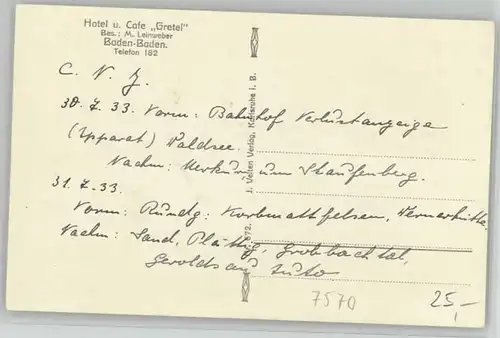 Hotel u. Cafe „Gretel"
Bes.: M. Leinweber
Baden-Baden.
Telefon 182
J. Velten Verlag, Karlsruhe i. B.
872.
30.7.33. Vorm: Bahnhof Verlustanzeige
(Apparat) Waldsee.
Nachm: Merkur um Staufenberg.
31.7.33.
Vorm: Rundg: Korbmattfelsen,
Nachm: Sand, Plättig, Grobbachtal,
Geroldsau Auto
7570
25,-